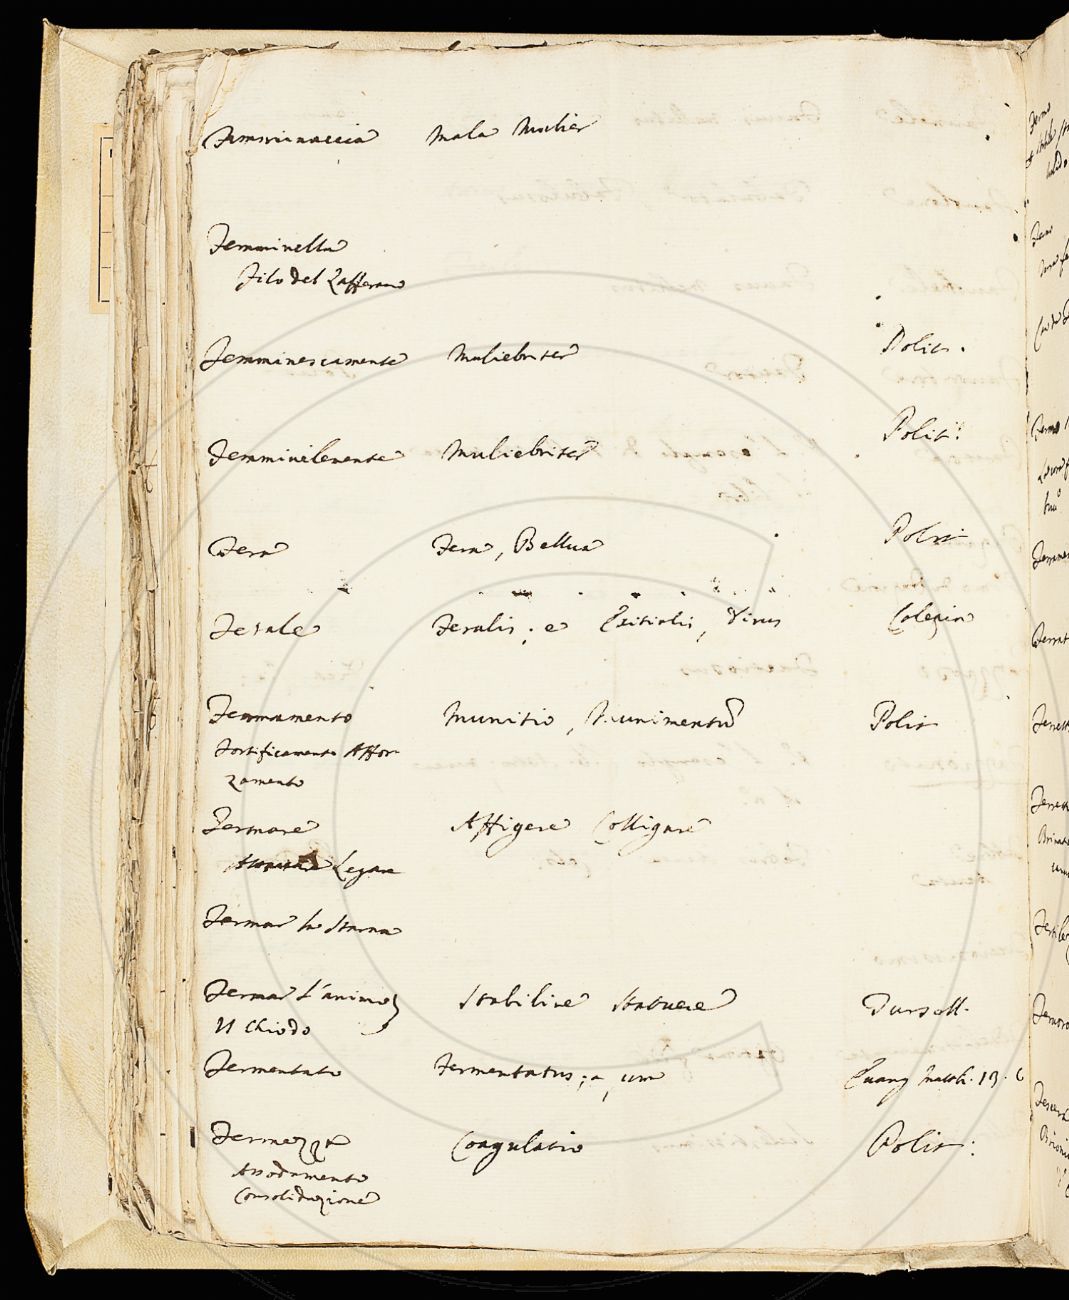 Femminaccia Mala Mulier
Femminella
Filo del Zafferano
Femminescamente Muliebriter Polit.
Femminilmente Muliebriter Polit.
Fera Fera, Bellua Polit
Ferale Feralis; e Exitialis, Dirus Calepin
Fermamento Munitio, Munimentũ Polit
Fortificamento Affor
zamento
Fermare Affigere Colligare
Legare
Fermar la Starna
Fermar L'animo Stabilire Statuere Tursell.
Il Chiodo
Fermentato Fermentatus; a, um Euang Matth. 13. 6
Fermezza Coagulatio Polit:
Assodamento
Consolidazione